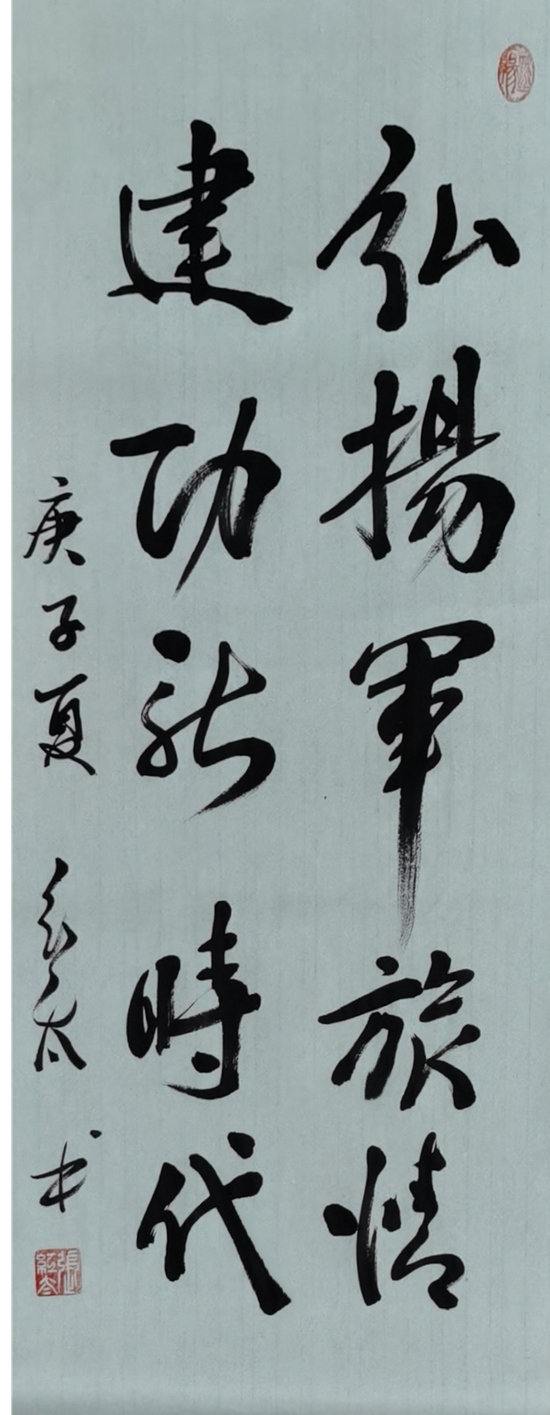 弘揚軍旅情
建功新時代
庚子夏 书